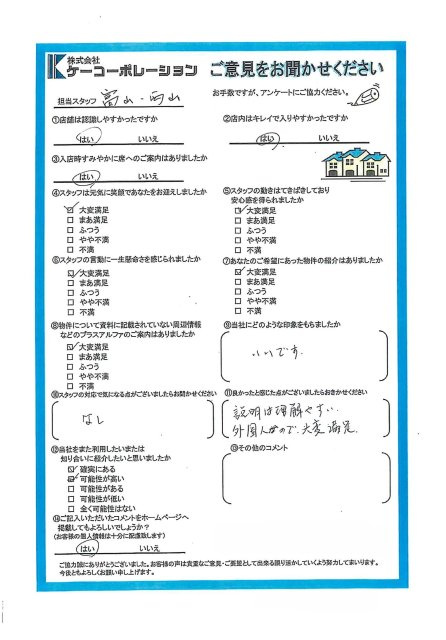 株式会社
ケーコーポレーション ご意見をお聞かせください
担当スタッフ 高山・西山
お手数ですが、アンケートにご協力ください。
①店舗は認識しやすかったですか
はい いいえ
②店内はキレイで入りやすかったですか
はい いいえ
③入店時すみやかに席へのご案内はありましたか
はい いいえ
④スタッフは元気に笑顔であなたをお迎えしましたか
☑ 大変満足
□ まあ満足
□ ふつう
□ やや不満
□ 不満
⑤スタッフの動きはてきぱきしており
安心感を得られましたか
☑ 大変満足
□ まあ満足
□ ふつう
□ やや不満
□ 不満
⑥スタッフの言動に一生懸命さを感じられましたか
☑ 大変満足
□ まあ満足
□ ふつう
□ やや不満
□ 不満
⑦あなたのご希望にあった物件の紹介はありましたか
☑ 大変満足
□ まあ満足
□ ふつう
□ やや不満
□ 不満
⑧物件について資料に記載されていない周辺情報
などのプラスアルファのご案内はありましたか
☑ 大変満足
□ まあ満足
□ ふつう
□ やや不満
□ 不満
⑨当社にどのような印象をもちましたか
いいです.
⑩スタッフの対応で気になる点がございましたらお聞かせください
なし
⑪良かったと感じた点がございましたらおきかせください
説明は理解やすい.
外国人なので、大変満足.
⑫当社をまた利用したいまたは
知り合いに紹介したいと思いましたか
☑ 確実にある
☑ 可能性が高い
□ 可能性がある
□ 可能性が低い
□ 全く可能性はない
⑬その他のコメント
⑭ご記入いただいたコメントをホームページへ
掲載してもよろしいでしょうか?
(お客様の個人情報は十分に配慮致します)
はい いいえ
ご協力誠にありがとうございました。お客様の声は貴重なご意見・ご要望として出来る限り活かしていくよう努力してまいります。
今後ともよろしくお願い申し上げます。